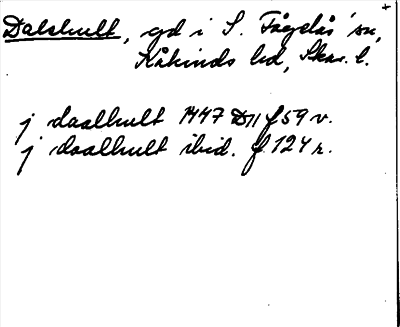 Dalshult, gd i S. Fågelås sn,
Kåkinds hd, Skar. l.
j daalhult 1447 D11 f 59 v.
j daalhult ibid. f. 124 r.